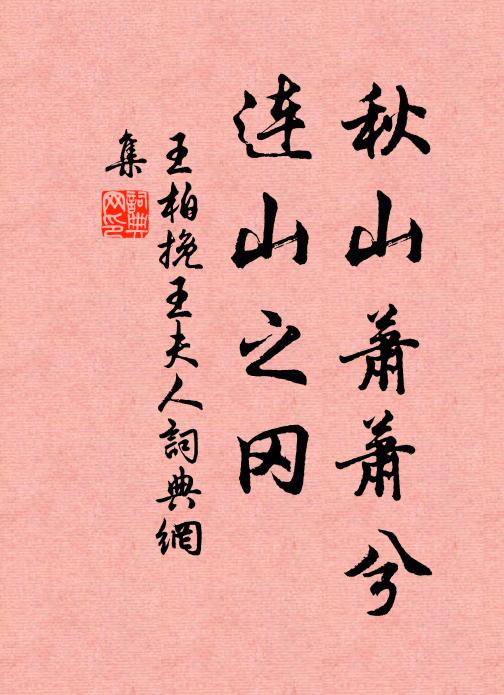 秋山蕭蕭兮
連山之冈
王柏挽王夫人詞典網
集
詞典
网印